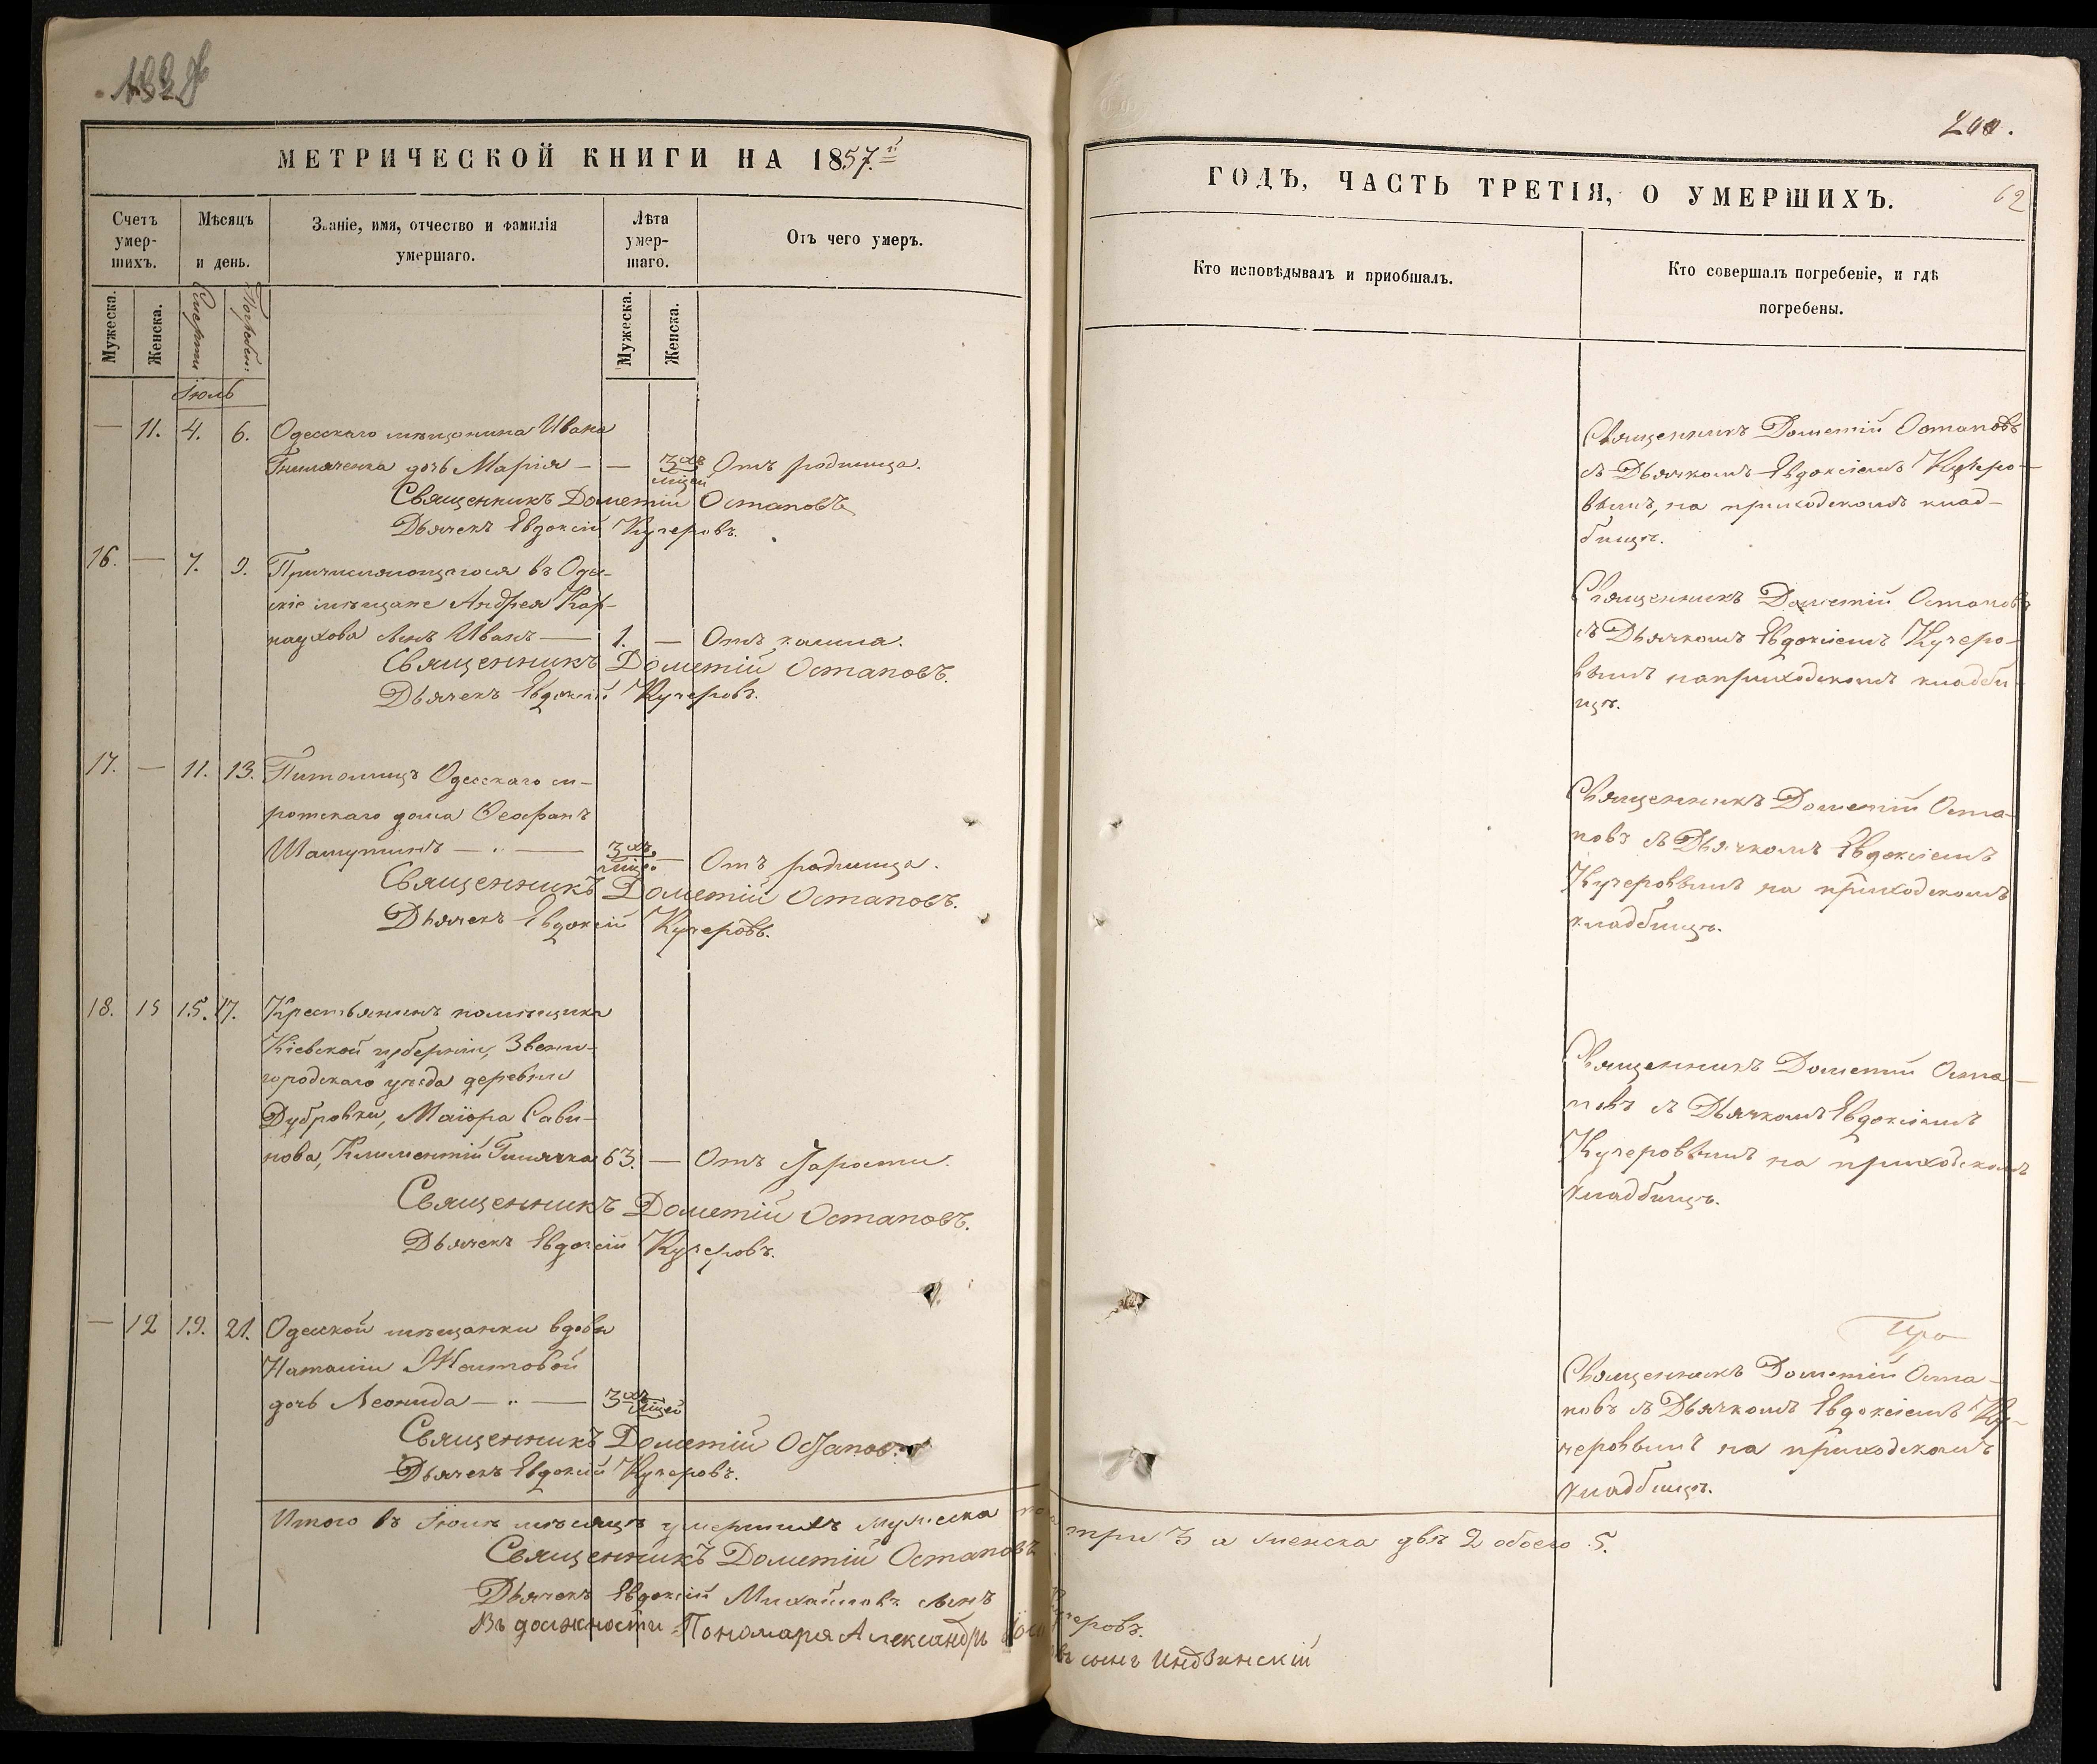 МЕТРИЧЕСКОЙ КНИГИ НА 1857.й
Счетъ умер-шихъ.
Мѣсяцъ и день.
Званіе, имя, отчество и фамилія умершаго.
Лѣта умер-шаго.
Отъ чего умеръ.
Мужеска.
Женска.
Смерти
Погребен:
Мужеска.
Женска.
Іюль
— 11. 4. 6. Одесскаго мѣщанина Ивана
дочь Марія — — 3хъ мцей Отъ родимца.
Священникъ Дометій Остаповъ
Дьячекъ Евдокій Кучеровъ.
16. — 7. 9. Причисляющагося въ Одес-
скіе мѣщане Андрея Кар-
наухова сынъ Иванъ — 1. — Отъ кашля.
Священникъ Дометій Остаповъ.
Дьячекъ Евдокій Кучеровъ.
17. — 11. 13. Питомецъ Одесскаго си-
ротскаго дома Ѳеофанъ
Шашутинъ — " — 3хъ мцей — Отъ родимца.
Священникъ Дометій Остаповъ.
Дьячекъ Евдокій Кучеровъ.
18. 15 15. 17. Крестьянинъ помѣщика
Кіевской губерніи, Звени-
городскаго уѣзда деревни
Дубровки, Маіора Сави-
нова, Климентій 63. — Отъ старости.
Священникъ Дометій Остаповъ.
Дьячекъ Евдокій Кучеровъ.
— 12 19. 21. Одесской мѣщанки вдовы
Наталіи Желтовой
дочь Леонида — " — 3хъ мцей
Священникъ Дометій Остаповъ
Дьячекъ Евдокій Кучеровъ.
Итого въ Іюлѣ мѣсяцѣ умершихъ мужеска по-
Священникъ Дометій Остаповъ
Дьячекъ Евдокій Михайловъ сынъ
Въ должности Пономаря Александръ
200.
62
ГОДЪ, ЧАСТЬ ТРЕТІЯ, О УМЕРШИХЪ.
Кто исповѣдывалъ и приобщалъ.
Кто совершалъ погребеніе, и гдѣ погребены.
Священникъ Дометій Остаповъ
съ Дьячкомъ Евдокіемъ Кучеро-
вымъ, на приходскомъ клад-
бищѣ.
Священникъ Дометій Остаповъ
съ Дьячкомъ Евдокіемъ Кучеро-
вымъ на приходскомъ кладби-
щѣ.
Священникъ Дометій Оста-
повъ съ Дьячкомъ Евдокіемъ
Кучеровымъ на приходскомъ
кладбищѣ.
Священникъ Дометій Оста-
повъ съ Дьячкомъ Евдокіемъ
Кучеровымъ на приходскомъ
кладбищѣ.
Священникъ Дометій Оста-
повъ съ Дьячкомъ Евдокіемъ Ку-
черовымъ на приходскомъ
кладбищѣ.
три 3 а женска двѣ 2 обоего 5.
Кучеровъ.
сынъ Индзинскій